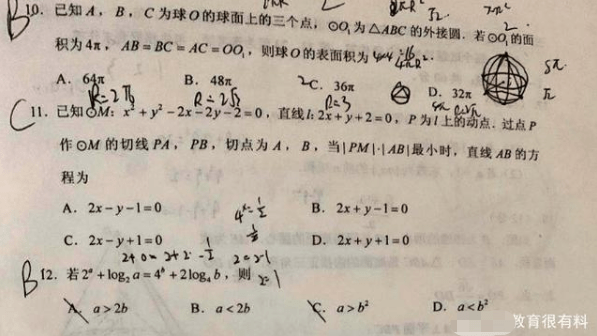 B 10. 已知 A，B，C 为球 O 的球面上的三个点，⊙O₁ 为 △ABC 的外接圆. 若 ⊙O₁ 的面
积为 4π，AB = BC = AC = OO₁，则球 O 的表面积为
A. 64π B. 48π C. 36π D. 32π
C 11. 已知⊙M: x² + y² − 2x − 2y − 2 = 0，直线 l: 2x + y + 2 = 0，P 为 l 上的动点. 过点 P
作 ⊙M 的切线 PA，PB，切点为 A，B，当 |PM|·|AB| 最小时，直线 AB 的方
程为
A. 2x − y − 1 = 0 B. 2x + y − 1 = 0
C. 2x − y + 1 = 0 D. 2x + y + 1 = 0
B 12. 若 2ᵃ + log₂ a = 4ᵇ + 2log₄ b，则
A. a > 2b B. a < 2b C. a > b² D. a < b²
教育很有料